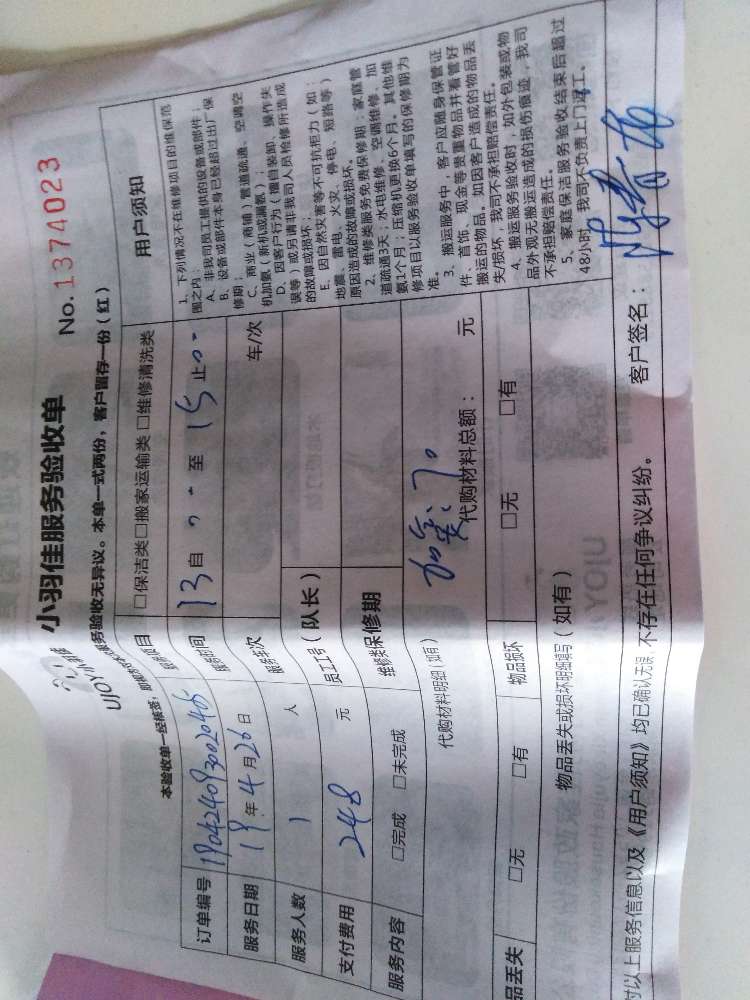 UJOY
小羽佳服务验收单
No.1374023
本验收单一经核签，
务验收无异议。本单一式两份，客户留存一份（红）
订单编号
服务项目 □保洁类□搬家运输类 □维修清洗类
服务日期 19年4月26日
服务时间 13 自 至 15 止
服务人数 1 人
服务车次 车/次
支付费用 248 元
员工工号（队长）
服务内容 □完成 □未完成
维修类保修期
代购材料明细（如有）
代购材料总额： 元
品丢失 □无 □有
物品损坏 □无 □有
物品丢失或损坏明细填写（如有）
对以上服务信息以及《用户须知》均已确认无误，不存在任何争议纠纷。
客户签名：
用户须知
1、下列情况不在维修项目的维保范
围之内：
A、非我司员工提供的设备或部件；
B、设备或部件本身已经超过出厂保
修期；
C、商业（商铺）管道疏通、空调空
机加氨（新机或漏氨）；
D、因客户行为（擅自装卸、操作失
误等）或另请非我司人员检修所造成
的故障或损坏；
E、因自然灾害等不可抗拒力（如：
地震、雷电、火灾、停电、短路等）
原因造成的故障或损坏。
2、维修类服务免费保修期：家庭管
道疏通3天；水电维修、空调维修、加
氨1个月；压缩机更换6个月。其他维
修项目以服务验收单填写的保修期为
准。
3、搬运服务中，客户应随身保管证
件、首饰、现金等贵重物品并看管好
搬运的物品。如因客户造成的物品丢
失损坏，我司不承担赔偿责任。
4、搬运服务验收时，如外包装或物
品外观无搬运造成的损伤痕迹，我司
不承担赔偿责任。
5、家庭保洁服务验收结束后超过
48小时，我司不负责上门返工。